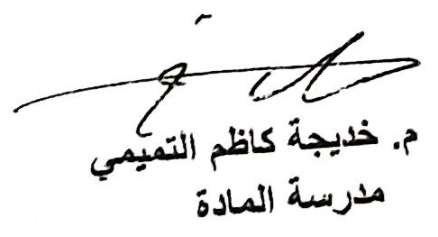 م. خديجة كاظم التميمي
مدرسة المادة